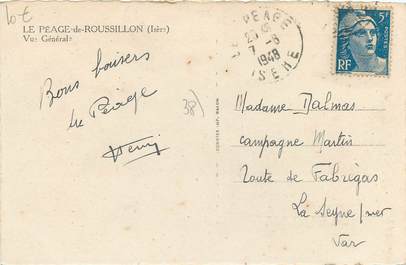 10€
LE PEAGE-de-ROUSSILLON (Isère)
Vue Générale
Bons baisers
du Péage
Henry
38)
PEAGE
7-8
1948
ISERE
5F
RF
Madame Dalmas
campagne Martin
Route de Fabrégas
La Seyne s/mer
Var